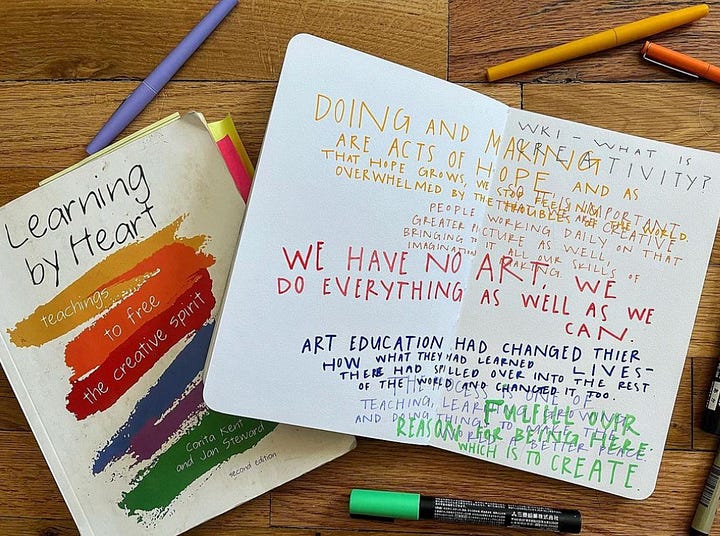 Learning
by Heart
teachings
to free
the creative spirit
Corita Kent
and Jan Steward
second edition
DOING AND MAKING
ARE ACTS OF HOPE AND AS
THAT HOPE GROWS, WE STOP FEELING
OVERWHELMED BY THE TROUBLES OF THE WORLD.
WKI – WHAT IS
CREATIVITY?
SO IT IS IMPORTANT
THAT ARE CREATIVE
PEOPLE WORKING DAILY ON THAT
GREATER PICTURE AS WELL,
BRINGING TO IT ALL OUR SKILLS OF
IMAGINATION MAKING.
WE HAVE NO ART, WE
DO EVERYTHING AS WELL AS WE
CAN.
ART EDUCATION HAD CHANGED THIER
LIVES-
HOW WHAT THEY HAD LEARNED
THERE HAD SPILLED OVER INTO THE REST
OF THE WORLD AND CHANGED IT TOO.
THE PROCESS IS ONE OF
TEACHING, LEARNING, GROWING
AND DOING THINGS TO MAKE THE
WORLD A BETTER PEACE.
FULFILL OUR
REASON FOR BEING HERE.
WHICH IS TO CREATE